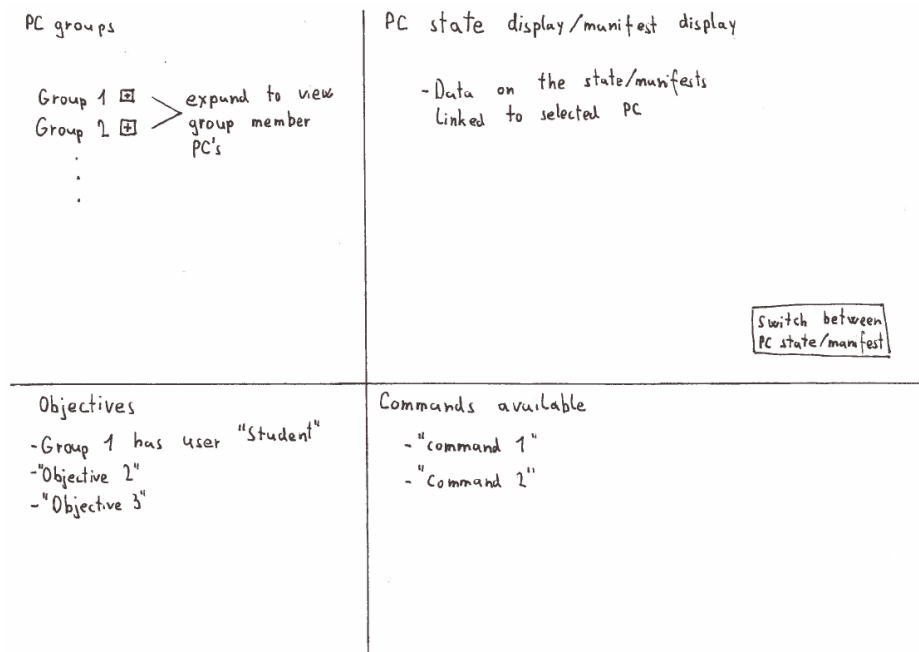 PC groups
Group 1 +
Group 2 +
expand to view
group member
PC's
.
.
.
PC state display/manifest display
-Data on the state/manifests
Linked to selected PC
Switch between
PC state/manifest
Objectives
-Group 1 has user "Student"
-"Objective 2"
-"Objective 3"
Commands available
-"command 1"
-"Command 2"